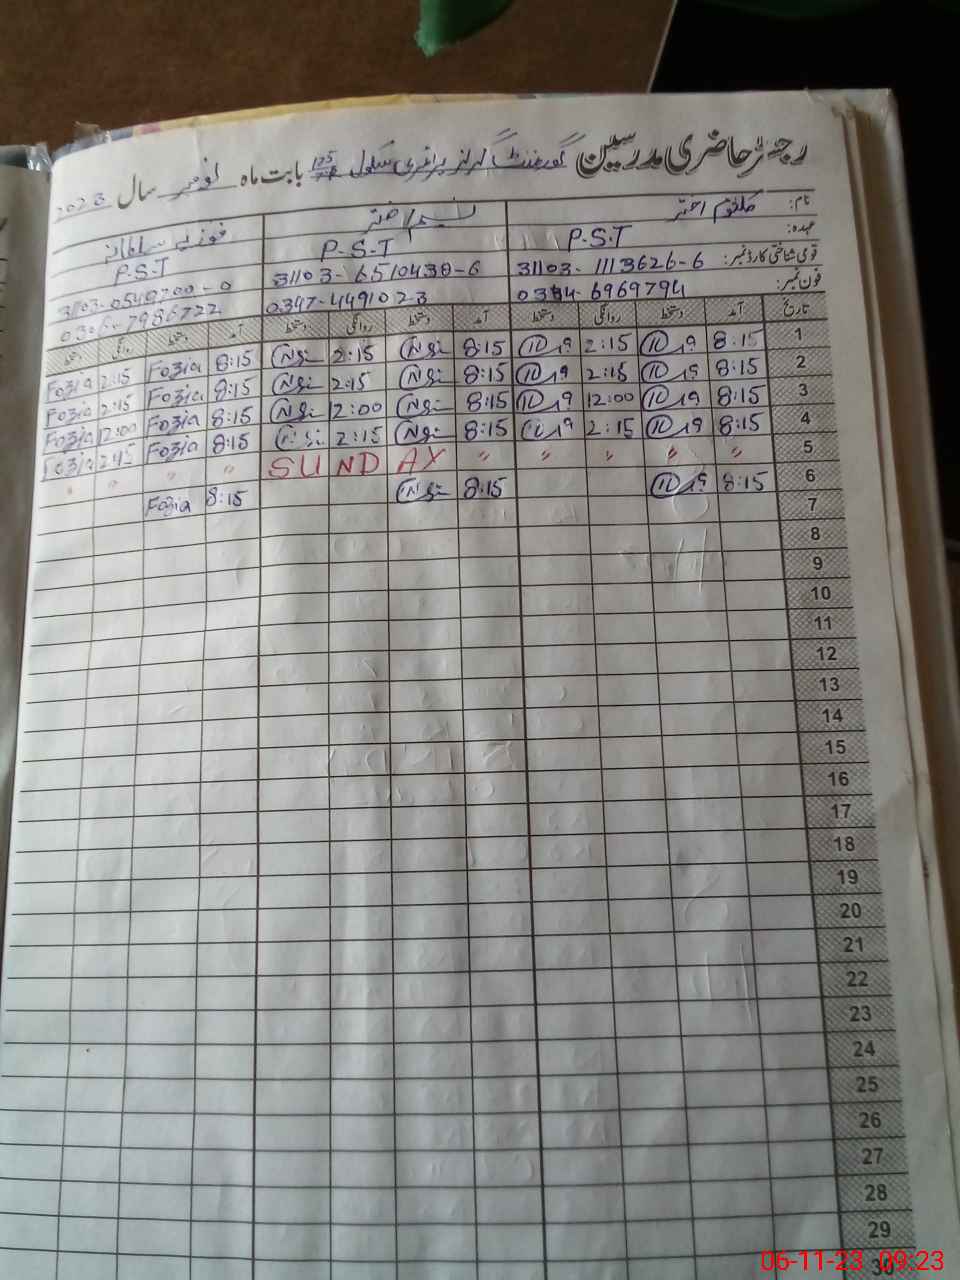 رجسٹر حاضری مدرسین گورنمنٹ گرلز پرائمری سکول 125 بابت ماہ نومبر سال 2023
نام: کلثوم اختر نسیم اختر فوزیہ سلطانہ
عہدہ: P.S.T P.S.T P.S.T
قومی شناختی کارڈ نمبر: 31103-1113626-6 31103-6510430-6 31103-0540700-0
فون نمبر: 0344-6969794 0347-4491023 0306-7986722
تاریخ آمد دستخط روانگی دستخط آمد دستخط روانگی دستخط آمد دستخط روانگی دستخط
1 8:15 2:15 8:15 2:15 8:15 Fozia 2:15 Fozia
2 8:15 2:15 8:15 2:15 8:15 Fozia 2:15 Fozia
3 8:15 12:00 8:15 12:00 8:15 Fozia 12:00 Fozia
4 8:15 2:15 8:15 2:15 8:15 Fozia 2:15 Fozia
5 " " " " " SUNDAY " " " "
6 8:15 8:15 8:15 Fozia
7
8
9
10
11
12
13
14
15
16
17
18
19
20
21
22
23
24
25
26
27
28
29
30
06-11-23 09:23